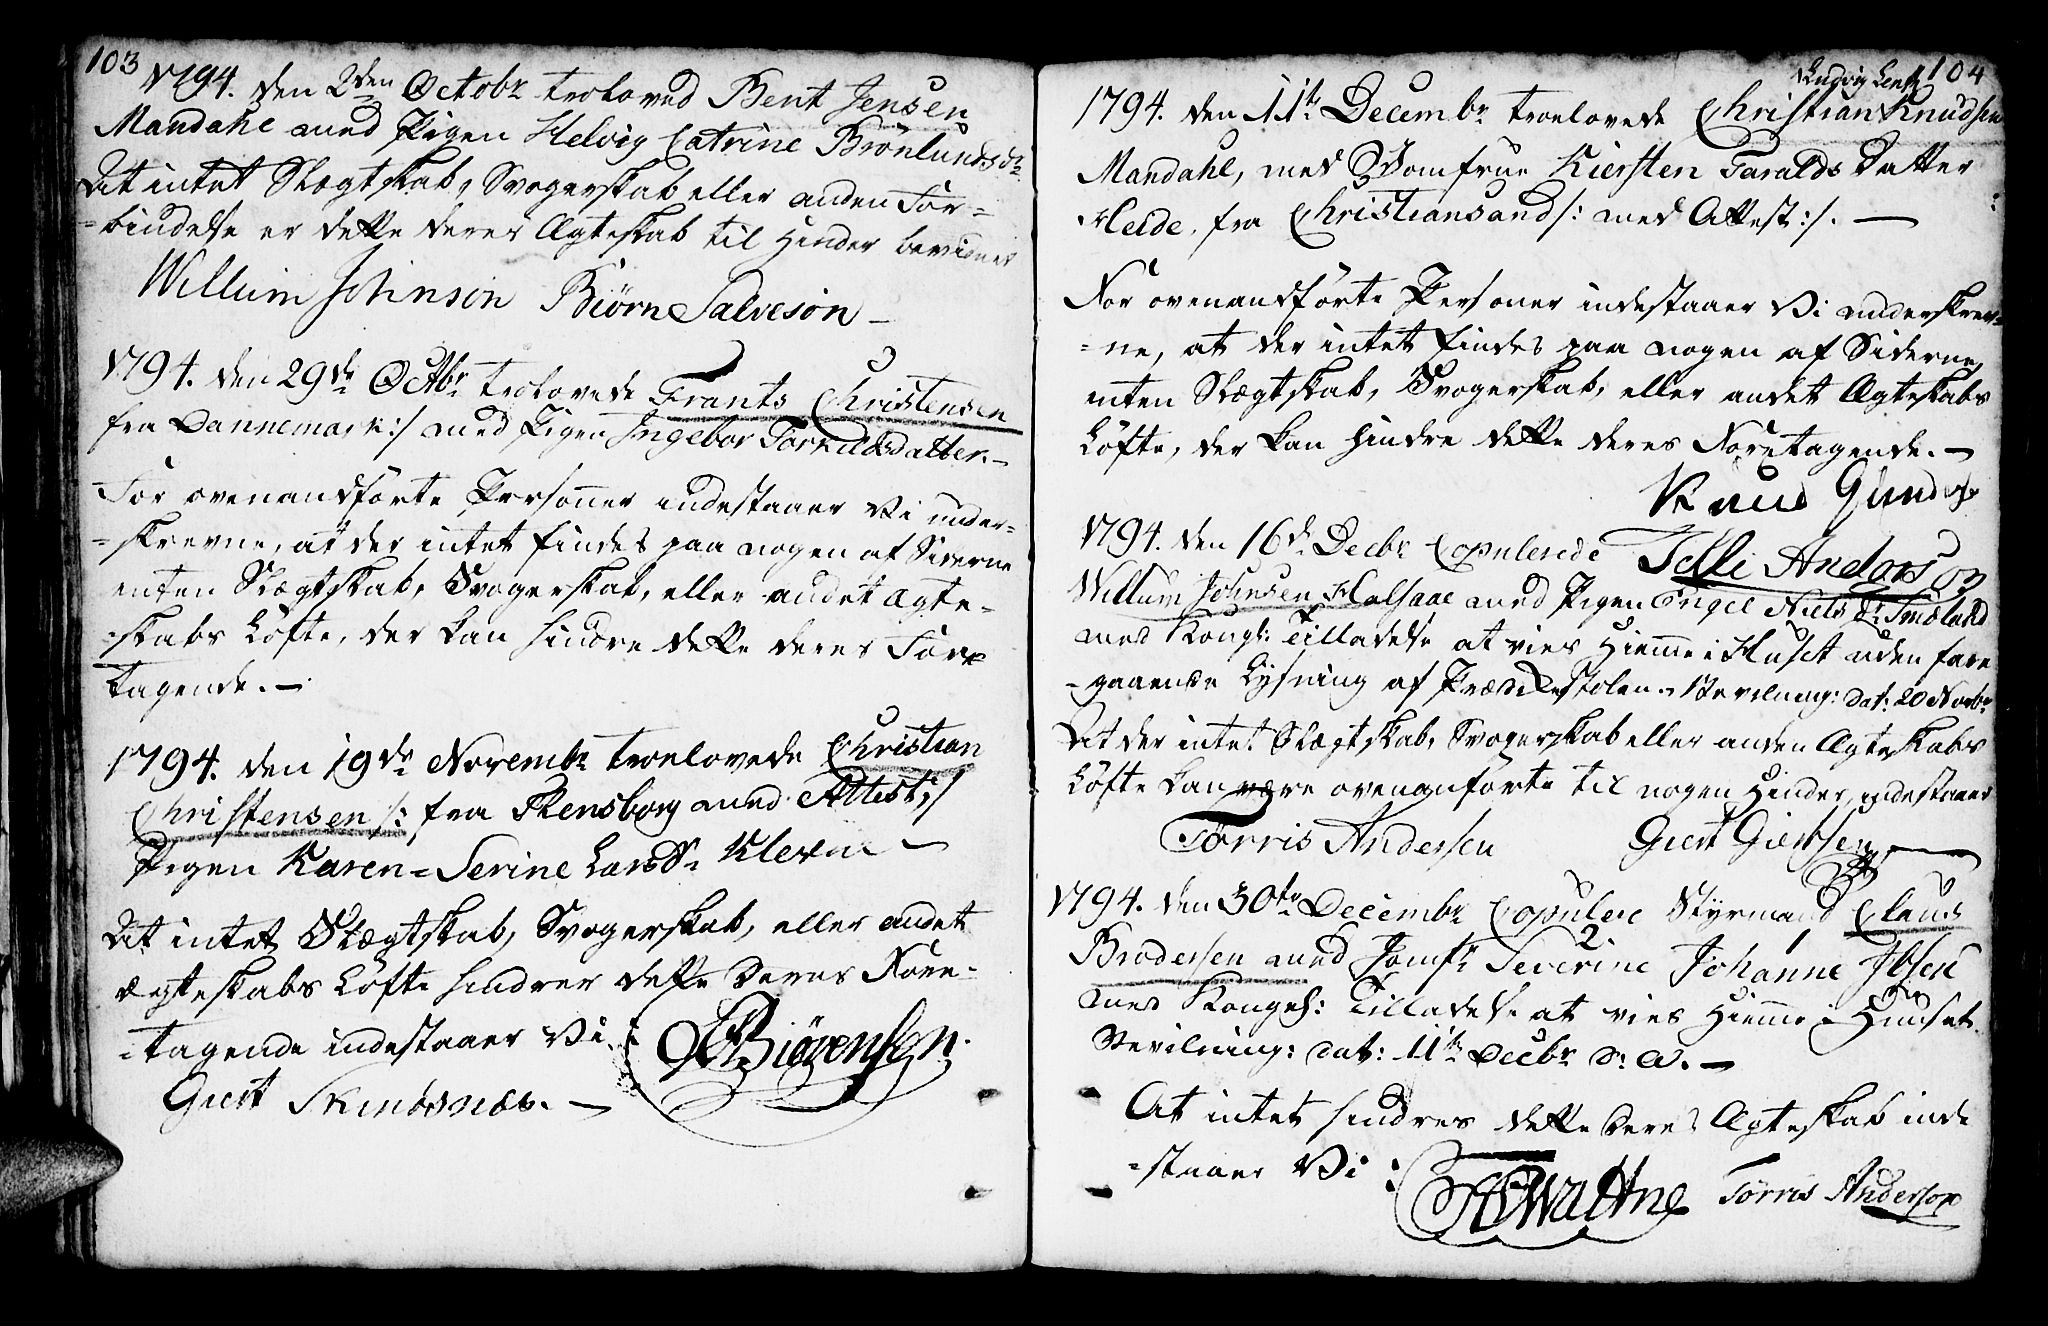 103
1794. den 2den Octobr troloved Bent Jensen
Mandahl med Pigen Helvig Catrine Brönlundsdr
At intet Slægtskab, Svogerskab eller anden For=
=bindelse er dette deres Ægteskab til Hinder bevidner
Willum Johnson Biørn Salveson
1794. den 29de Octbr trolovede Frants Christensen
fra Dannemark:/ med Pigen Ingebor Torkildsdatter.
For ovenandførte Personer indestaaer Vi under=
=skrevne, at der intet findes paa nogen af Siderne
enten Slægtskab, Svogerskab, eller andet Ægte=
=skabs Løfte, der kan hindre dette deres Fore
tagende.
1794. den 19de Novembr troelovede Christian
Christensen /: fra Flensborg med Attest:/
Pigen Karen=Serine Larsdr Kleven
At intet Slægtskab, Svogerskab, eller andet
Ægteskabs Løfte hindrer dette deres Fore=
=tagende indestaaer Vi.
Biörensen.
Giert
104
Ludvig Lentz
1794. den 11te Decembr troelovede Christian Knudsen
Mandahl, med Jomfrue Kiersten Taralds Datter
Heide, fra Christiansand /: med Attest:/.
For ovenandførte Personer indestaaer Vi underskrev=
=ne, at der intet findes paa nogen af Siderne,
enten Slægtskab, Svogerskab, eller andet Ægteskabs
Løfte, der kan hindre dette deres Foretagende.
Knud
1794. den 16de Decbr Copulerede
Telli Anderson
Willum Johnsen Halsaae med Pigen Engel Niels Dr
med Kongl: Tilladelse at vies Hiemme i Huset uden fore
=gaaende Lysning af Prædikestolen. Bevilning: dat: 20 Novbr
At der intet Slægtskab, Svogerskab eller anden Ægteskabs
Løfte kan være ovenanførte til nogen Hinder, indestaaer
Torris Andersen Giert Giertsen
1794. den 30te Decembr Copulere Styrmand Claus
Brodersen med Jomfr Severine 2 Johanne 1 Ibsen
med Kongel: Tilladelse at vies Hiemme i Huuset.
Bevilning: dat: 11te Decbr d: A.
At intet hindrer dette deres Ægteskab inde
=staaer Vi:
Torris Anderson